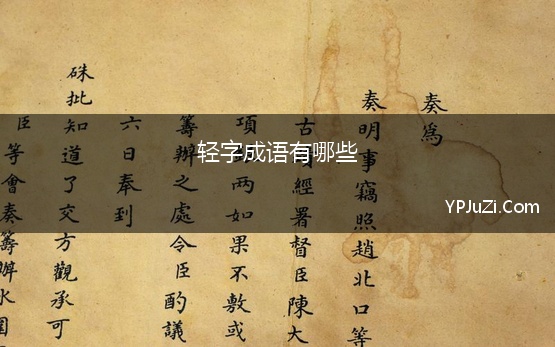 轻字成语有哪些
YPJuZi.Com
奏為
奏明事竊照趙北口等
古經署督臣陳大
項兩如果不敷或
籌辦之處令臣酌議
六日奉到
硃批知道了交方觀承可
臣等會奏籌辦水